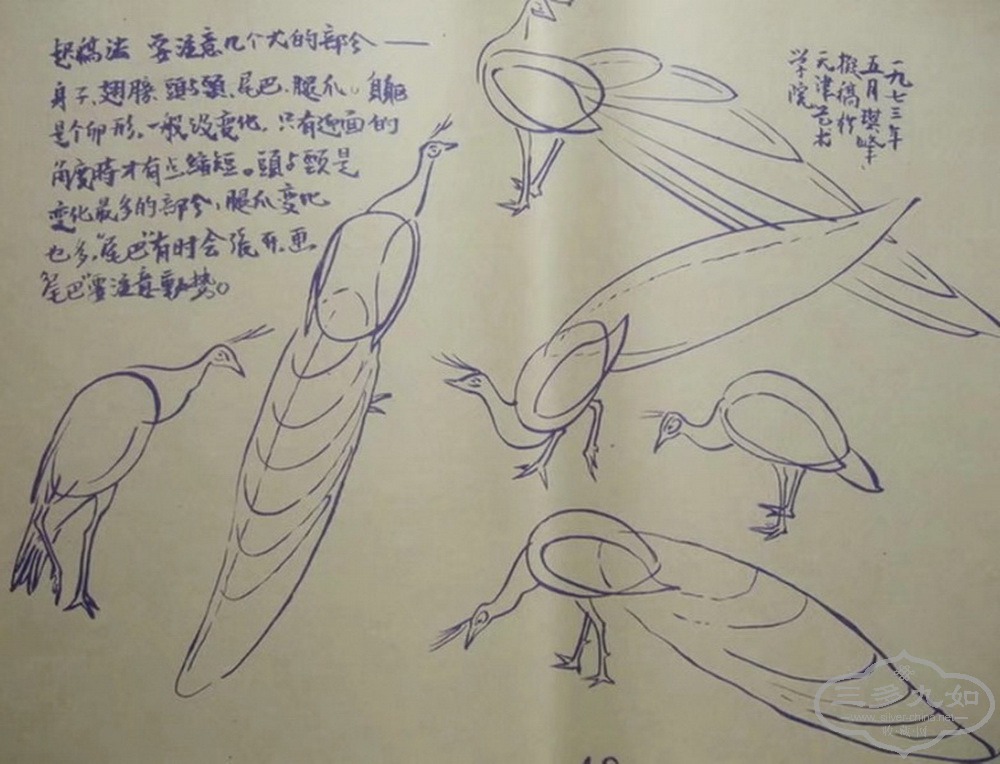 起稿法 要注意几个大的部分——
身子、翅膀、頭与頸、尾巴、腿爪。身軀
是个卵形,一般没变化,只有迎面的
角度時才有点縮短。頭与頸是
变化最多的部分,腿爪变化
也多,尾巴有时会張开,画
尾巴要注意動势。
一九七三年
五月
擬稿於
天津艺术
学院
三多九如
www.silverchina.net
收藏网